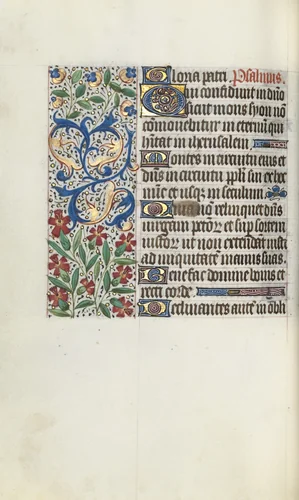 Gloria patri. Psalmus.
Qui confidunt in dn̄o
sicut mons syon nō
comouebitur in eternū qui
hītat in iherusalem
Montes in circuitu eius et
dn̄s in circuitu ppl̄i sui ex hoc
nūc et usqz in seculum
Quia nō relinquet dn̄s
uirgam pctōr̄ sup sortem
iustor̄ ut non extendat iusti
ad iniquitatē manus suas.
Benefac domine bonis et
recti corde.
Declinantes autē in obli